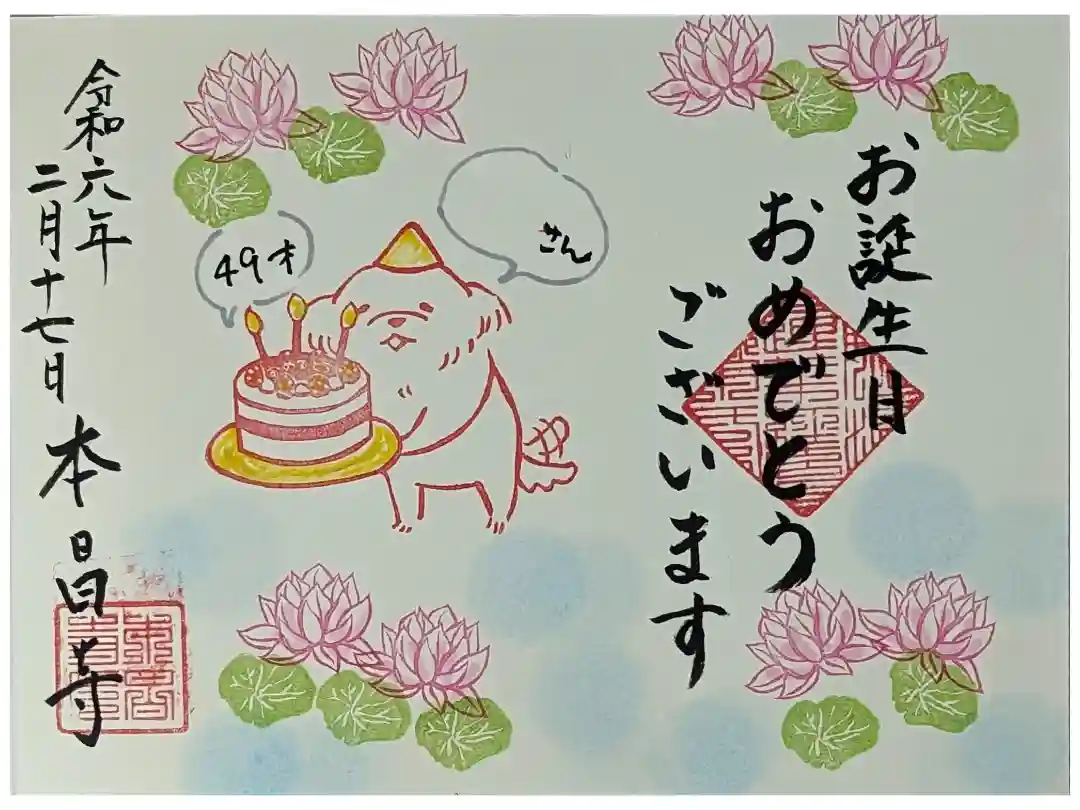 お誕生日
おめでとう
ございます
さん
49才
おめでとう
令和六年
二月十七日
本昌寺